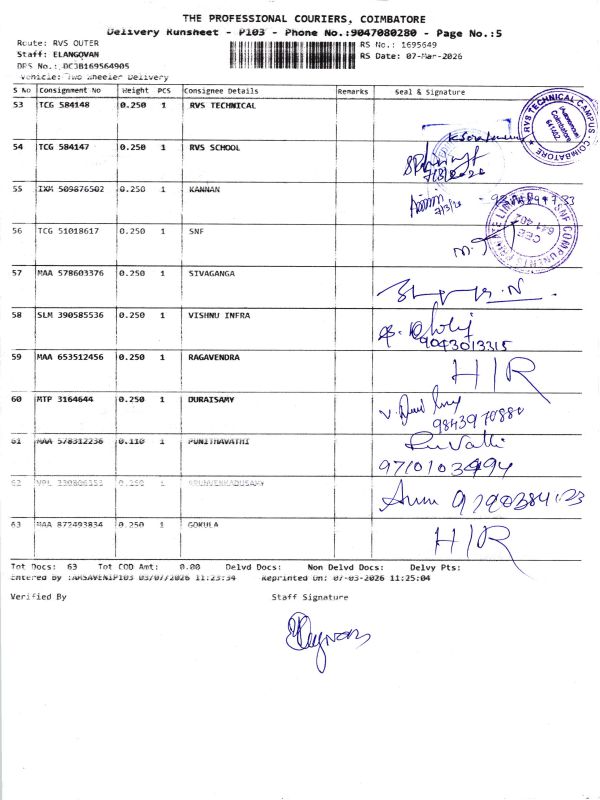 THE PROFESSIONAL COURIERS, COIMBATORE
Delivery Runsheet - P103 - Phone No.:9047080280 - Page No.:5
Route: RVS OUTER
RS No.: 1695649
Staff: ELANGOVAN
RS Date: 07-Mar-2026
DRS No.:.DC3B169564905
Vehicle: Two Wheeler Delivery
S No Consignment No Weight PCS Consignee Details Remarks Seal & Signature
53 TCG 584148 0.250 1 RVS TECHNICAL
RVS TECHNICAL CAMPUS - COIMBATORE
(Autonomous)
Coimbatore
641402
54 TCG 584147 0.250 1 RVS SCHOOL
7/3/2026
55 IXM 509876502 0.250 1 KANNAN
7/3/26
56 TCG 51018617 0.250 1 SNF
641 402
57 MAA 578603376 0.250 1 SIVAGANGA
58 SLM 390585536 0.250 1 VISHNU INFRA
9043013315
59 MAA 653512456 0.250 1 RAGAVENDRA
H/R
60 MTP 3164644 0.250 1 DURAISAMY
9843970880
61 MAA 578312236 0.110 1 PUNITHAVATHI
9710103494
62 VPL 330806353 0.250 1 ARUNVENKADUSAMY
63 MAA 872493834 0.250 1 GOKULA
H/R
Tot Docs: 63 Tot COD Amt: 0.00 Delvd Docs: Non Delvd Docs: Delvy Pts:
Entered By :ARSAVENIP103 03/07/2026 11:23:34 Reprinted On: 07-03-2026 11:25:04
Verified By
Staff Signature